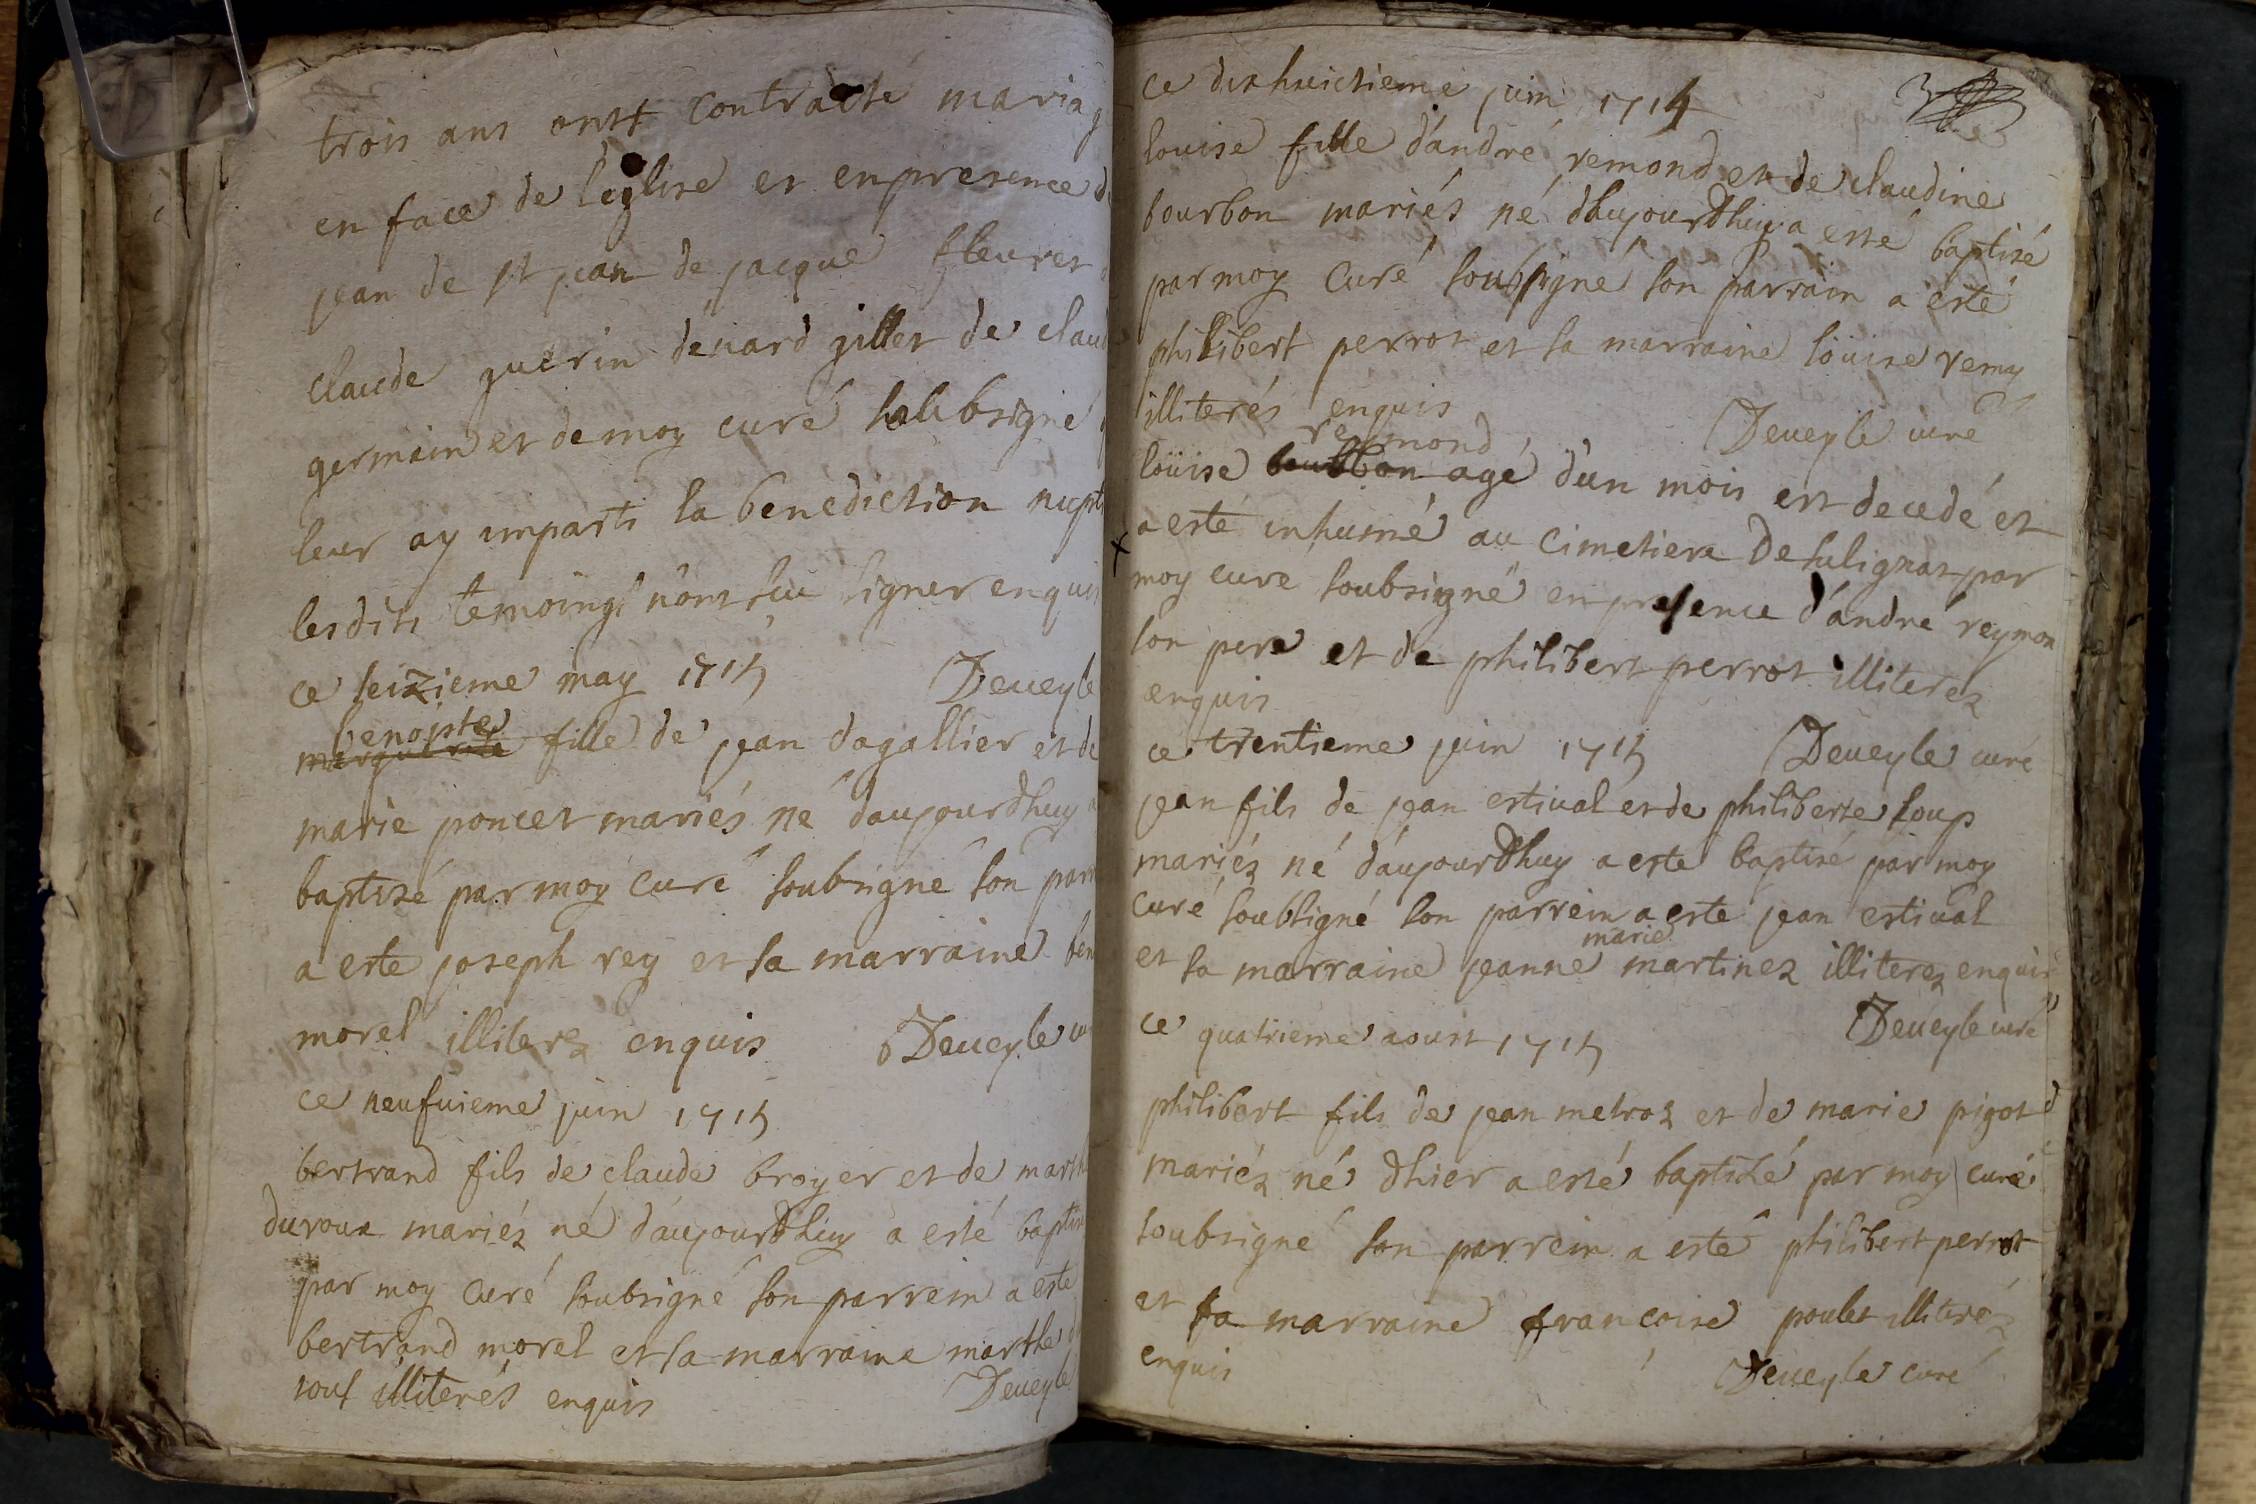 trois ans ont contracte mariag
en face de leglise et en presence d
jean de st jean de jacque fleuret
claude guerin denard gillet de claud
germain et de moy curé soubsigné q
leur ay imparti la benediction nupt
lesdits temoings n'ont sceu signer enquis
ce seizieme may 1715 Deueyle
benoiste
marguerite fille de jean dagallier et de
marie poncet mariés né daujourdhuy a
baptisé par moy curé soubsigné son parr
a este joseph rey et sa marraine ben
morel illiterez enquis Deueyle cu
ce neufuieme juin 1715
bertrand fils de claude broyer et de marth
duroux mariéz né d'aujourdhuy a esté baptis
par moy curé soubsigné son parrein a este
bertrand morel et sa marraine marthe d
tous illiterés enquis Deueyle
ce dixhuictieme juin 1715
louise fille d'andré remond et de claudine
bourbon mariés né d'aujourdhuy a esté baptisé
par moy curé soubsigné son parrain a esté
philibert perrot et sa marraine loüise remy
illiterés enquis Deueyle curé
reymond
loüise bourbon agé d'un mois est decedé et
a esté inhumé au cimetiere de sulignat par
moy cure soubsigné en presence d'andré reymon
son pere et de philibert perrot illiterez
enquis
ce trentieme juin 1715 Deueyle curé
jean fils de jean estiual et de philiberte loup
mariéz né d'aujourdhuy a este baptisé par moy
curé soubsigné son parrein a este jean estiual
marie
et sa marraine jeanne martinez illiterez enquis
Deueyle curé
ce quatrieme aoust 1715
philibert fils de jean metroz et de marie pigot
mariéz né dhier a esté baptisé par moy curé
soubsigné son parrein a esté philibert perrot
et sa marraine francoise poulet illiteréz
enquis Deueyle curé